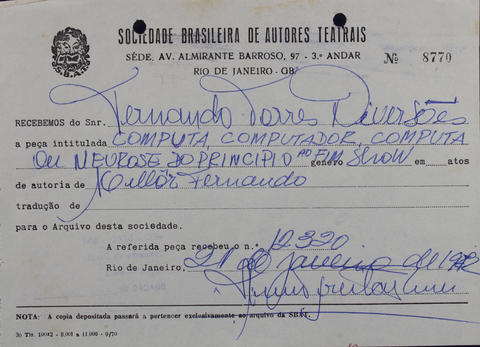 SOCIEDADE BRASILEIRA DE AUTORES TEATRAIS
SÉDE, AV. ALMIRANTE BARROSO, 97 - 3.º ANDAR
RIO DE JANEIRO - GB
Nº 8770
S.B.A.T.
RECEBEMOS do Snr. Fernando Torres Diversões
a peça intitulada COMPUTA, COMPUTADOR, COMPUTA
OU NEUROSE DO PRINCIPIO AO FIM genero SHOW em atos
de autoria de Millôr Fernando
tradução de
para o Arquivo desta sociedade.
A referida peça recebeu o n.º 12320
Rio de Janeiro, 21 de janeiro de 1972
NOTA: A copia depositada passará a pertencer exclusivamente ao arquivo da SBAT.
30 Tls. 10042 - 8.001 a 11.000 - 9/70